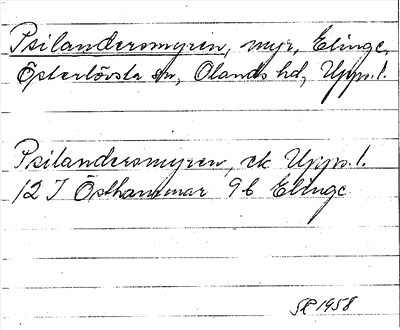 Psilandersmyren, myr, Elinge,
Österlövsta sn, Olands hd, Upps.l.
Psilandersmyren, ek Upps.l.
12 I Östhammar 9b Elinge
SR 1958